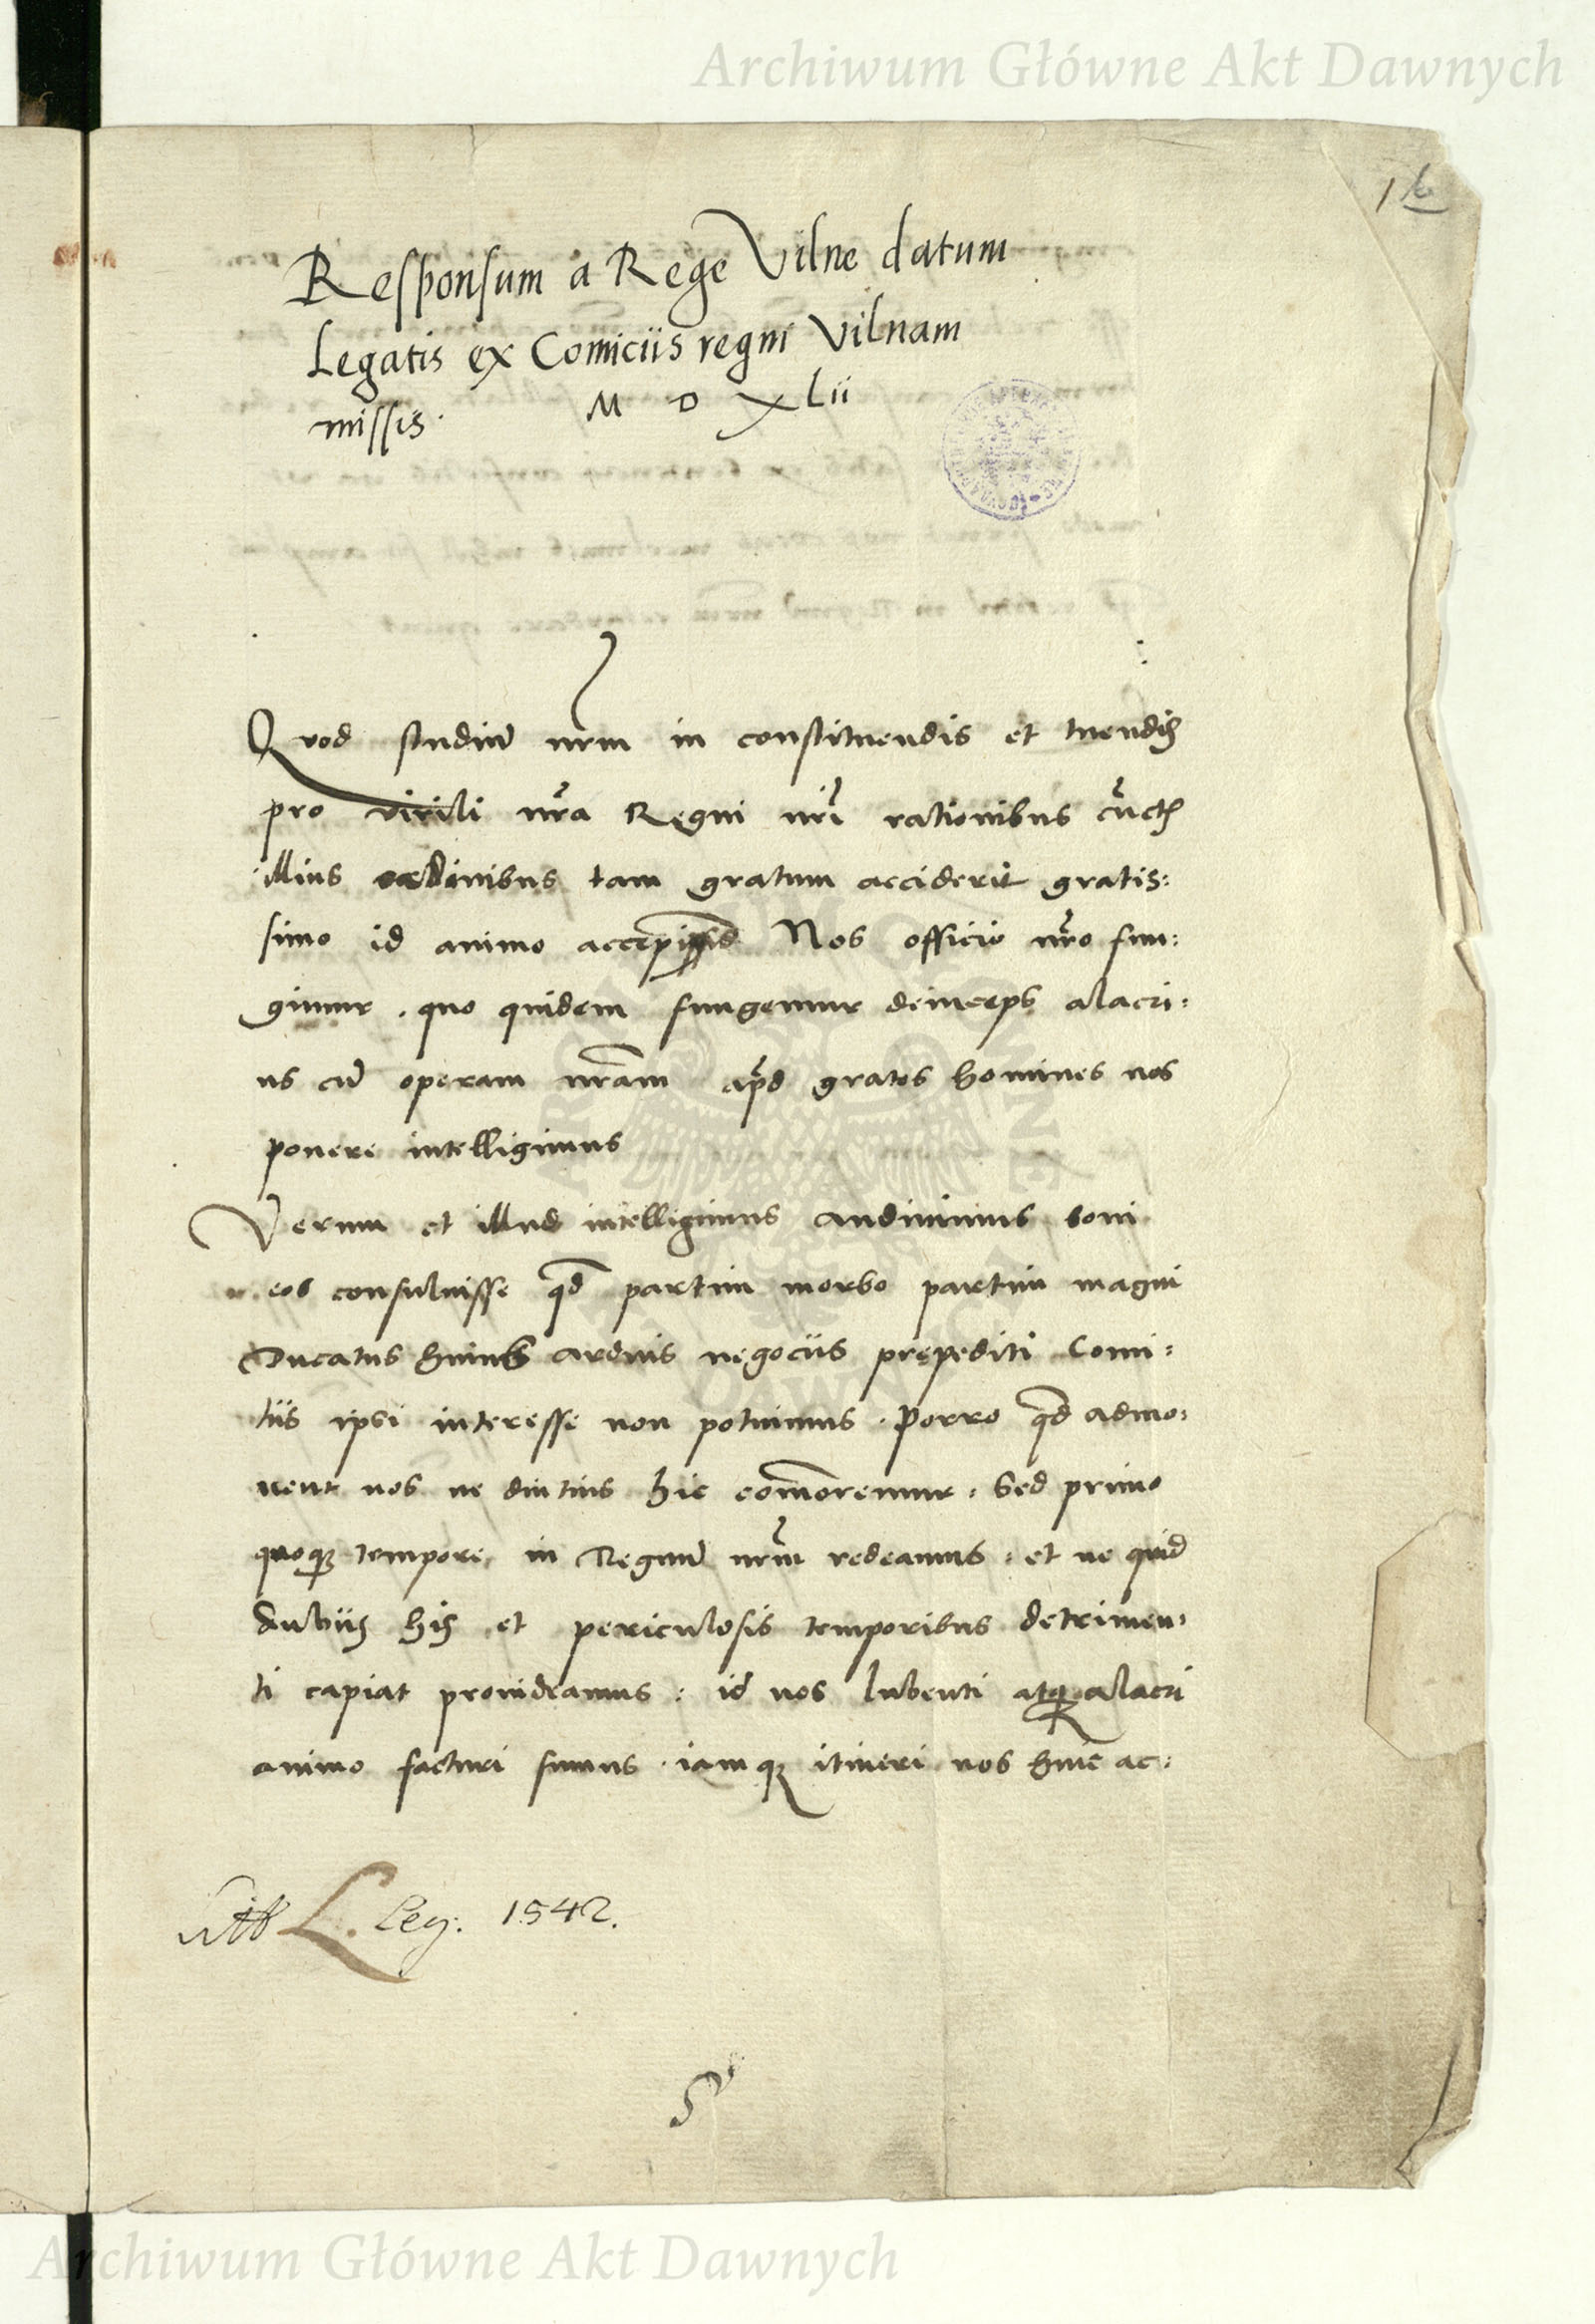 Archiwum Główne Akt Dawnych
1
Responsum a Rege Vilne datum
Legatis ex Comiciis regni Vilnam
missis. M D XLii
Quod studiũ nrm in constituendis et tuendis
pro virili nrã Regni nrĩ rationibus cũctis
illius ordinibus tam gratum acciderit gratis:
simo id animo Nos officio nrõ fun:
gimur . quo quidem fungemur deinceps alacri:
us cũ operam nrãm apd gratos homines nos
ponere intelligimus
Verum et illud intelligimus audiuimus boni
eos consuluisse qđ partim morbo partim magni
Ducatus huius arduis negociis prępediti Comi:
tiis ipsi interesse non potuimus . Porro qđ admo:
nent nos ne diutius hic comõremur : sed primo
quoqȝ tempore in Regnũ nrm̃ redeamus : et ne quid
dubiis his et periculosis temporibus detrimen:
ti capiat prouideamus : id nos lubenti atqȝ alacri
animo facturi sumus . iamqȝ itineri nos huic ac:
Litt L. Leg. 1542.
Archiwum Główne Akt Dawnych